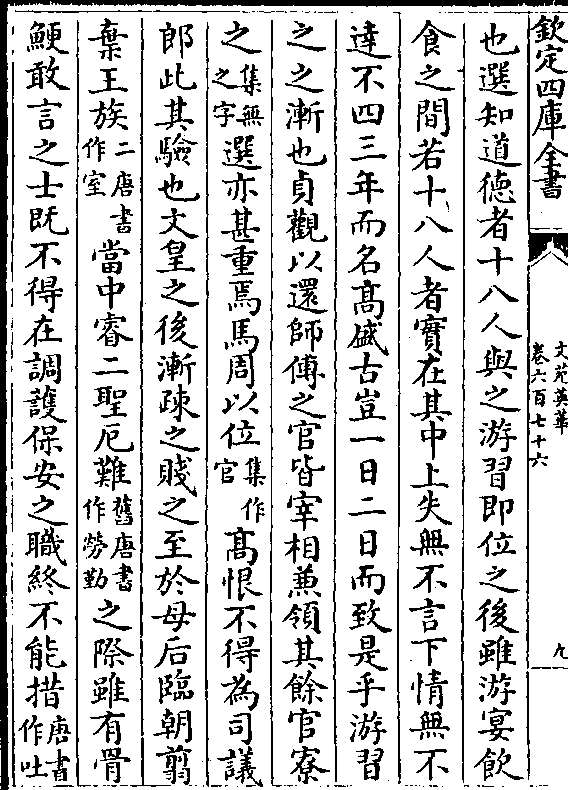 欽定四庫全書
文苑英華
卷六百七十六
九
也選知道德者十八人與之游習即位之後雖游宴飲
食之間若十八人者實在其中上失無不言下情無不
達不四三年而名髙盛古豈一日二日而致是乎游習
之之漸也貞觀以還師傅之官皆宰相兼領其餘官寮
之集無之字選亦甚重焉馬周以位集作官髙恨不得為司議
郎此其驗也文皇之後漸疎之賤之至於母后臨朝翦
棄王族二唐書作室當中睿二聖厄難舊唐書作勞勤之際雖有骨
鯁敢言之士既不得在調護保安之職終不能措唐書作吐